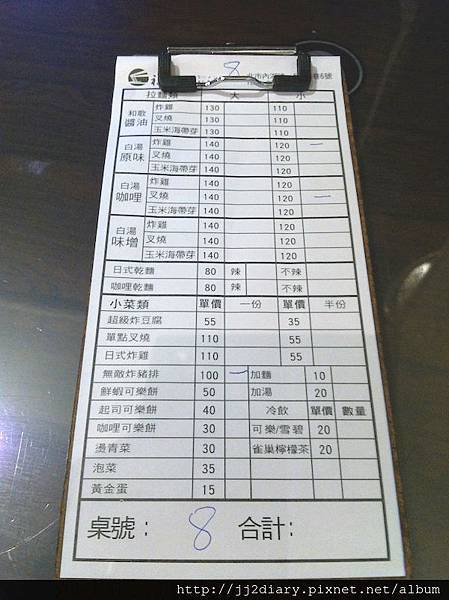 8
北市內
拉麵類 大 小
和歌醬油 炸雞 130 110
叉燒 130 110
玉米海帶芽 130 110
白湯原味 炸雞 140 120 一
叉燒 140 120
玉米海帶芽 140 120
白湯咖哩 炸雞 140 120
叉燒 140 120 一
玉米海帶芽 140 120
白湯味增 炸雞 140 120
叉燒 140 120
玉米海帶芽 140 120
日式乾麵 80 辣 不辣
咖哩乾麵 80 辣 不辣
小菜類 單價 一份 單價 半份
超級炸豆腐 55 35
單點叉燒 110 55
日式炸雞 110 55
無敵炸豬排 100 一 加麵 10
鮮蝦可樂餅 50 加湯 20
起司可樂餅 40 冷飲 單價 數量
咖哩可樂餅 30 可樂/雪碧 20
燙青菜 30 雀巢檸檬茶 20
泡菜 35
黃金蛋 15
桌號: 8 合計:
http://jj2diary.pixnet.net/album